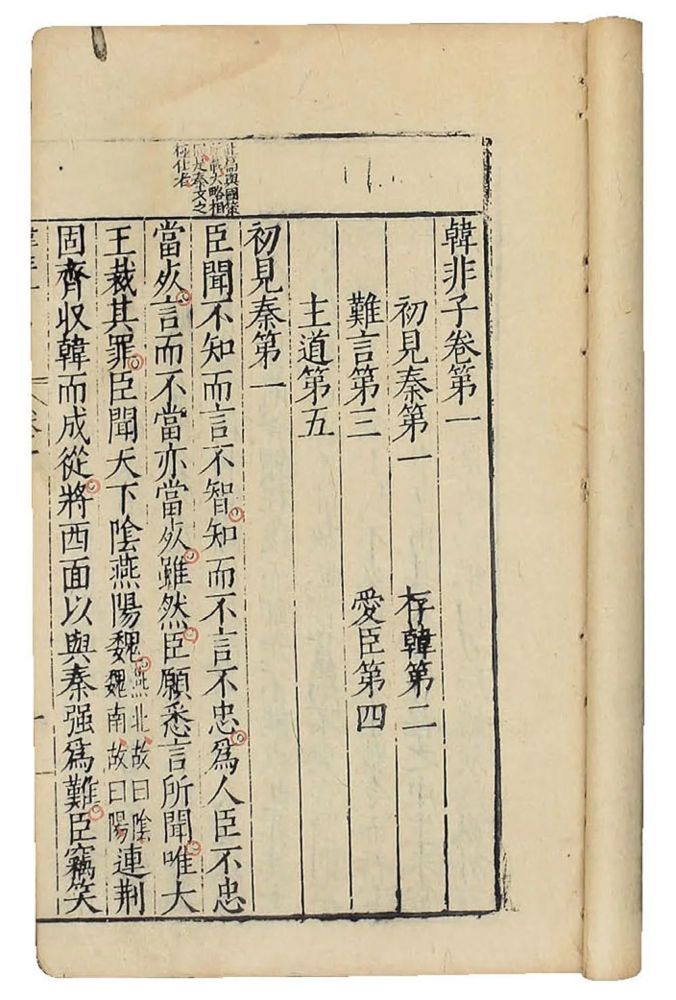 韓非子卷第一
初見秦第一 存韓第二
難言第三 愛臣第四
主道第五
初見秦第一
臣聞不知而言不智知而不言不忠爲人臣不忠
當死言而不當亦當死雖然臣願悉言所聞唯大
王裁其罪臣聞天下陰燕陽魏燕北故曰陰魏南故曰陽連荆
固齊収韓而成從將西面以與秦强爲難臣竊笑
此篇與國策
所載大略相
同尤秦文之
極佳者